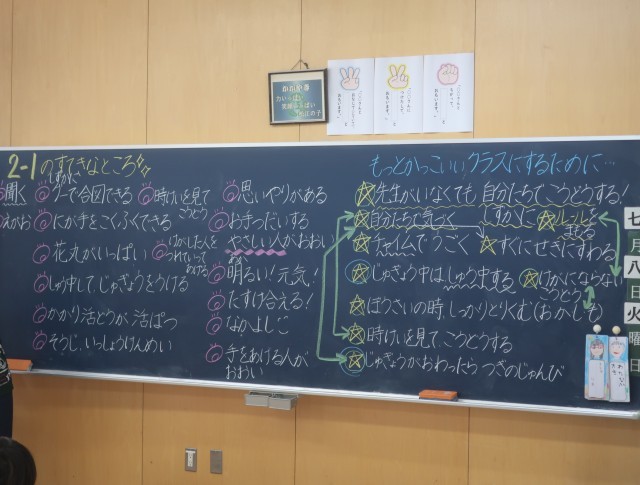 2-1のすてきなところ
聞く
しずかに
グーで合図できる
時けいを見て
こうどう
えがお
にが手をこくふくできる
花丸がいっぱい
けがした人を
つれていって
あげる
しゅう中して、じゅぎょうをうける
かかり活どうが、活ぱつ
そうじ、いっしょうけんめい
思いやりがある
お手つだいする
やさしい人がおおい
明るい！元気！
たすけ合える！
なかよしこ
手をあげる人が
おおい
もっとかっこいい！クラスにするために…
先生がいなくても、自分たちでこうどうする！
自分たちで気づく
しずかに
ルールを
まもる
チャイムでうごく
すぐにせきにすわる
じゅぎょう中はしゅう中する
けがにならない
こうどう
ぼうさいの時、しっかりとりくむ(おかしも)
時けいを見て、こうどうする
じゅぎょうがおわったら つぎのじゅんび
七
月
八
日
火
曜
日